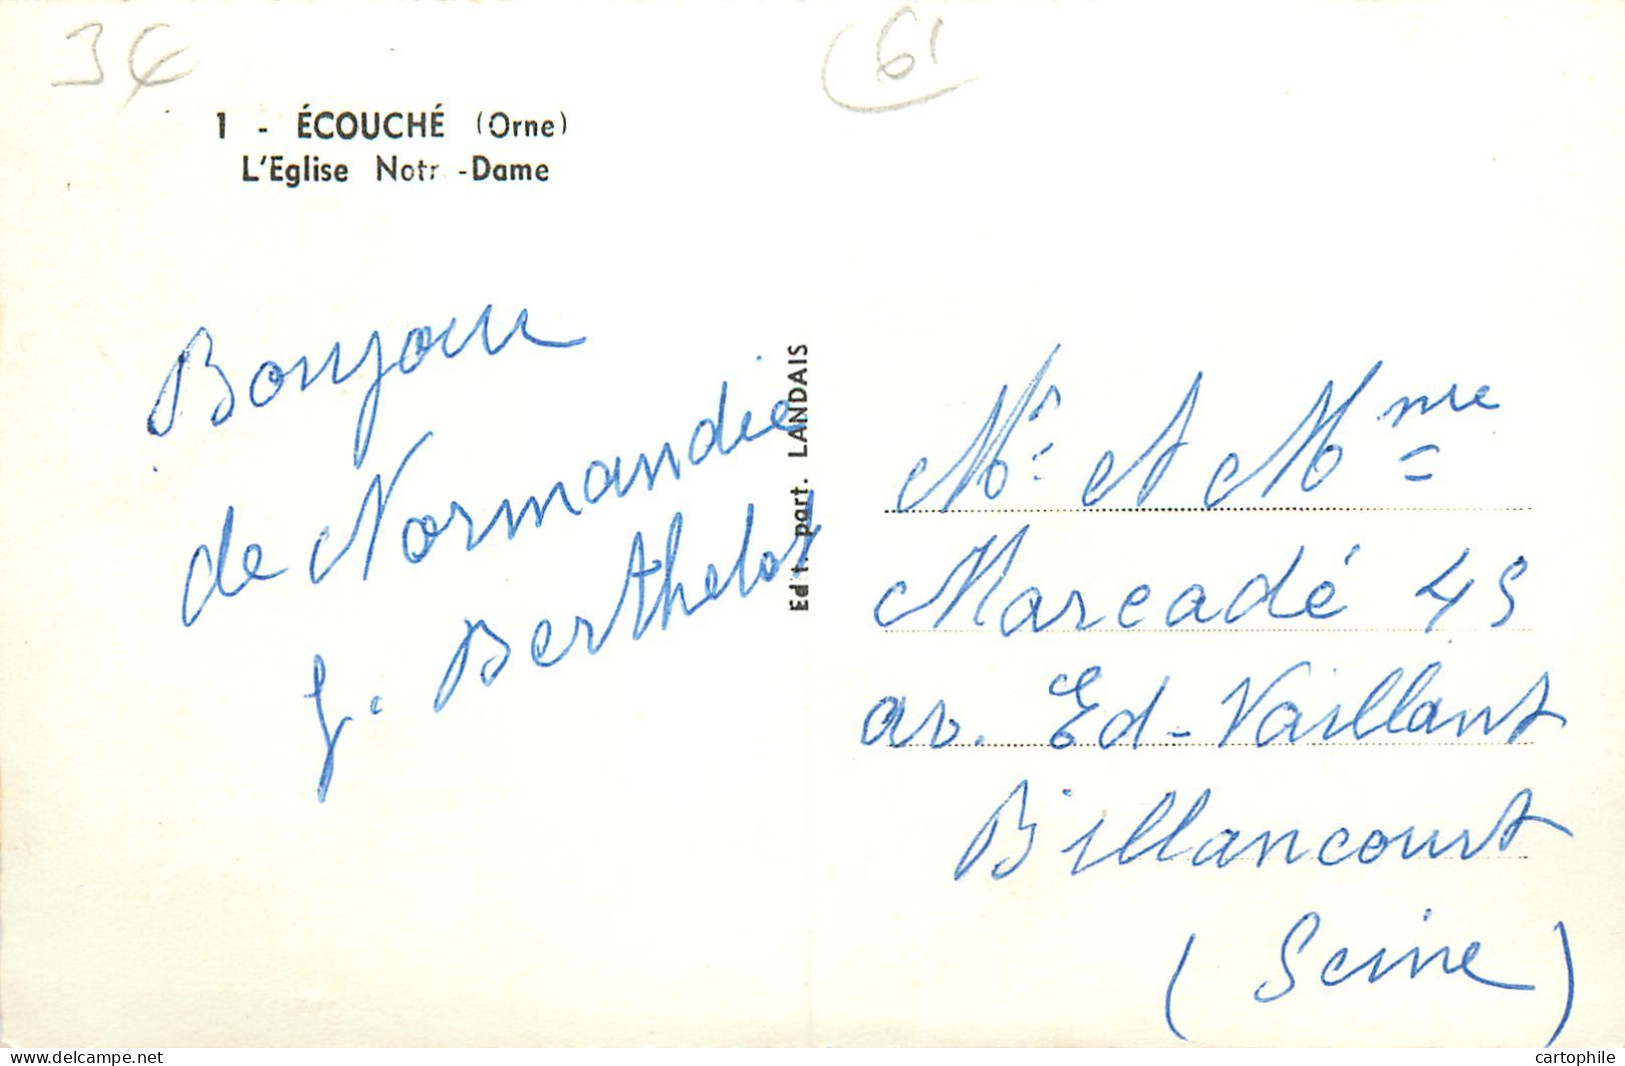 3€
61
1 - ÉCOUCHÉ (Orne)
L'Eglise Notr -Dame
Bonjour
de Normandie
J. Berthelot
Edit. part. LANDAIS
Mr et Mme
Marcadé 45
av. Ed-Vaillant
Billancourt
(Seine)
www.delcampe.net
cartophile